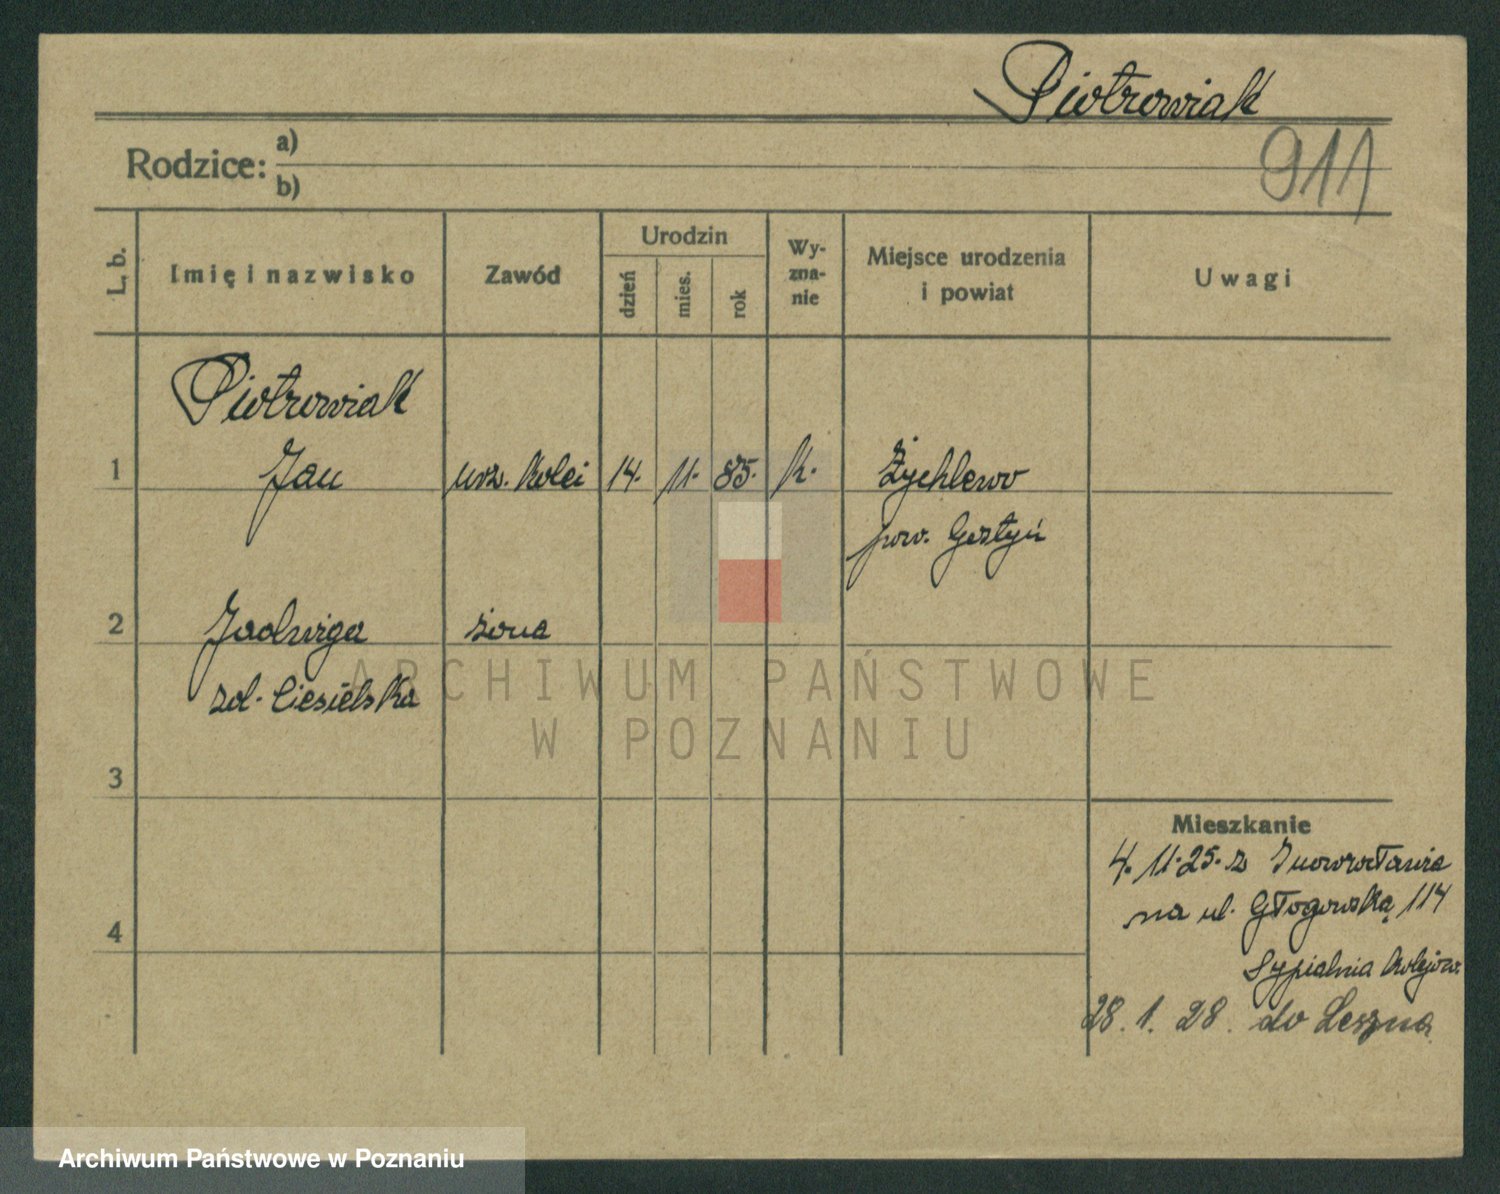 Piotrowiak
911
Rodzice: a)
b)
L. b.
Imię i nazwisko
Zawód
Urodzin
dzień
mies.
rok
Wy-
zna-
nie
Miejsce urodzenia
i powiat
Uwagi
Piotrowiak
1 Jan urz. kolei 14. 11. 85. k. Żychlewo
pow. Gostyń
2 Jadwiga żona
zd. Ciesielska
3
4
Mieszkanie
4. 11. 25. z Inowrocławia
na ul. Głogowską 114
Sypialnia kolejow.
28. 1. 28. do Leszna
ARCHIWUM PAŃSTWOWE
W POZNANIU
Archiwum Państwowe w Poznaniu